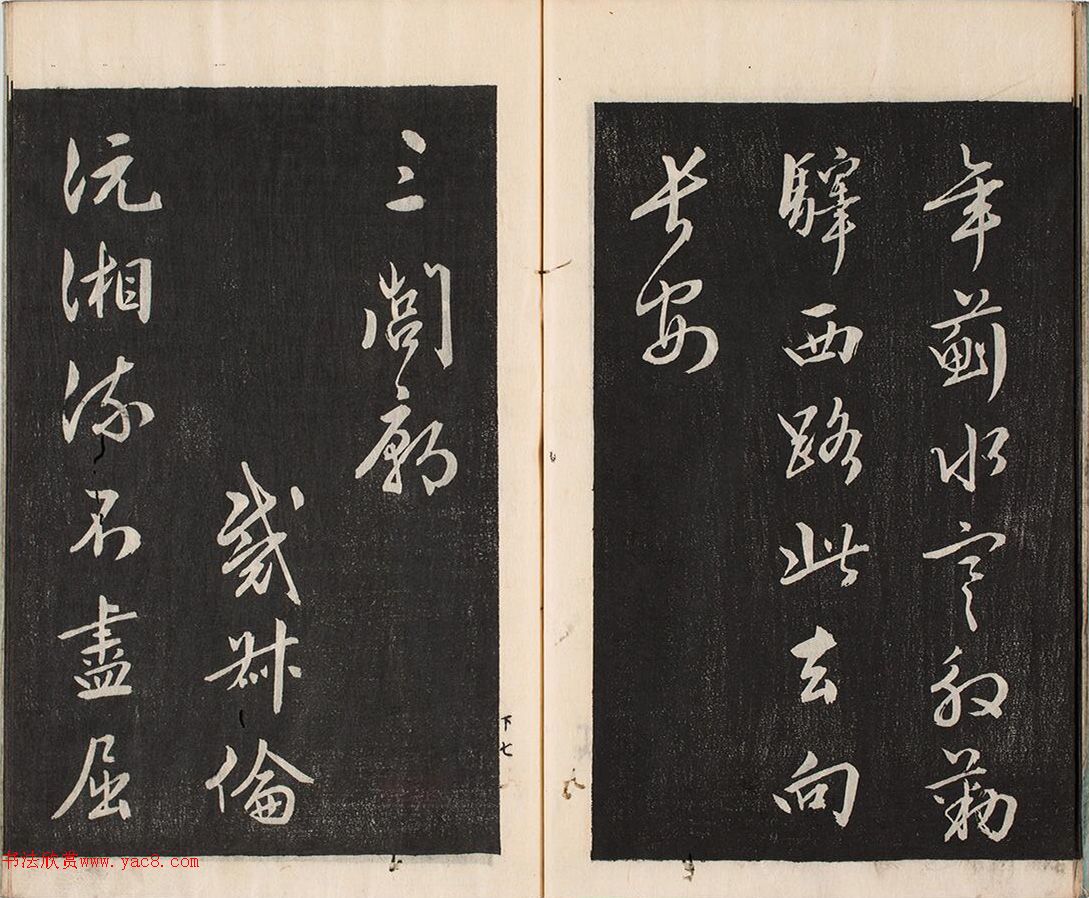 年薊水寒殷勤
驛西路此去向
長安
三閭廟
戴叔倫
沅湘流不盡屈
下七
书法欣赏www.yac8.com